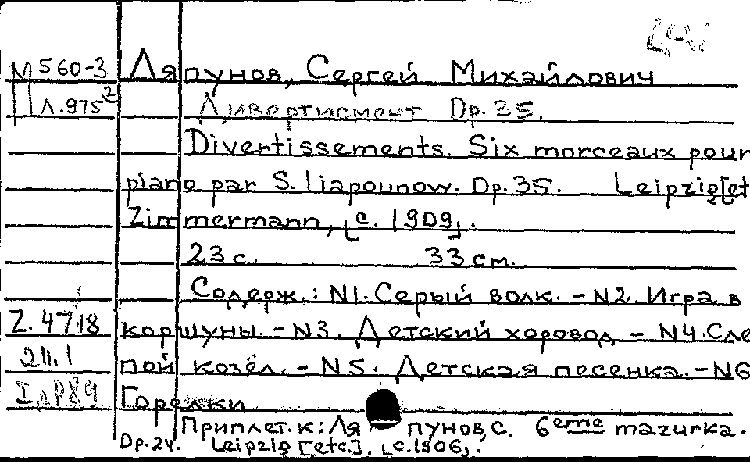 М560-3 Ляпунов, Сергей Михайлович
Л.975² Дивертисмент Op. 35.
Divertissements. Six morceaux pour
piano par S. Liapounow. Op. 35. Leipzig [et
Zimmermann, [c. 1909].
23 с. 33 см.
Содерж.: N1. Серый волк. - N2. Игра в
Z. 4718 коршуны. - N3. Детский хоровод - N4. Сле
211.1 пой козёл. - N5. Детская песенка. - N6
Горелки
Приплет. к: Ляпунов, С. 6eme mazurka.
Op. 24. Leipzig [etc.], [c. 1906].